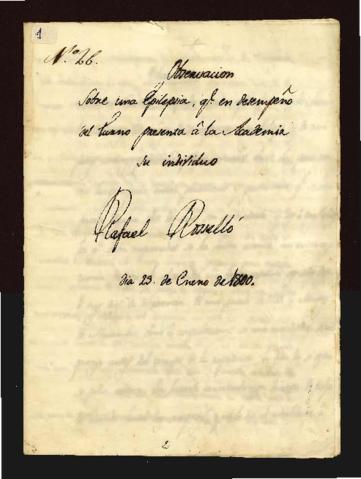 1
Nº 26.
Observacion
sobre una Epilepsia, qᵉ en desempeño
del turno presenta â la Academia
su individuo
Rafael Rosselló
dia 23. de Enero de 1800.
2